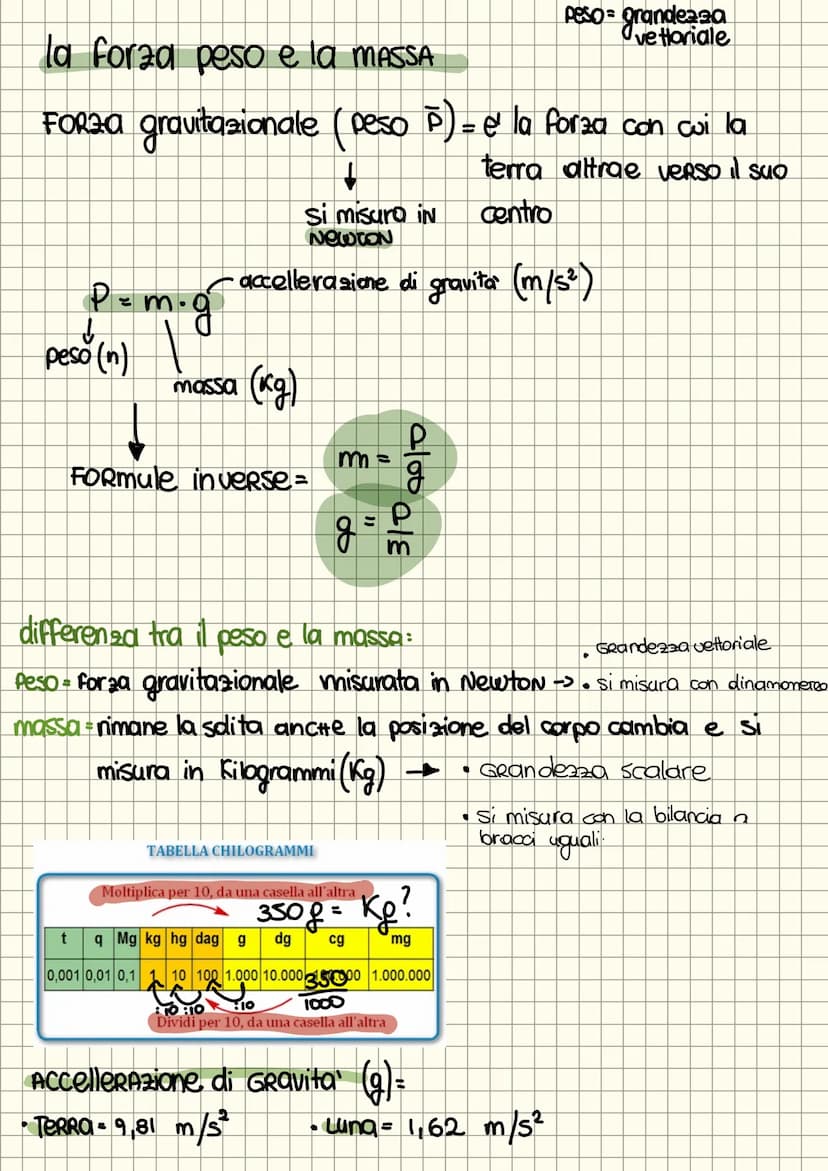 peso = grandezza
vettoriale
la forza peso e la MASSA
FORZA gravitazionale (peso P̄) = e' la forza con cui la
↓ terra attrae verso il suo
si misura in centro
NEWTON
P = m·g accellerazione di gravita' (m/s²)
peso (n)
massa (Kg)
FORmule inverse =
m = P/g
g = P/m
differenza tra il peso e la massa:
• Grandezza vettoriale
Peso = forza gravitazionale misurata in Newton -> • si misura con dinamometro
massa = rimane la sdita anche la posizione del corpo cambia e si
misura in Kilogrammi (Kg) → • Grandezza scalare
• si misura con la bilancia a
bracci uguali.
TABELLA CHILOGRAMMI
Moltiplica per 10, da una casella all'altra
350g = Kg?
t q Mg kg hg dag g dg cg mg
0,001 0,01 0,1 1 10 100 1.000 10.000 1.000.000
350/1000
:10 :10 :10
Dividi per 10, da una casella all'altra
Accellerazione di Gravita' (g) =
• TERRA = 9,81 m/s² • Luna = 1,62 m/s²